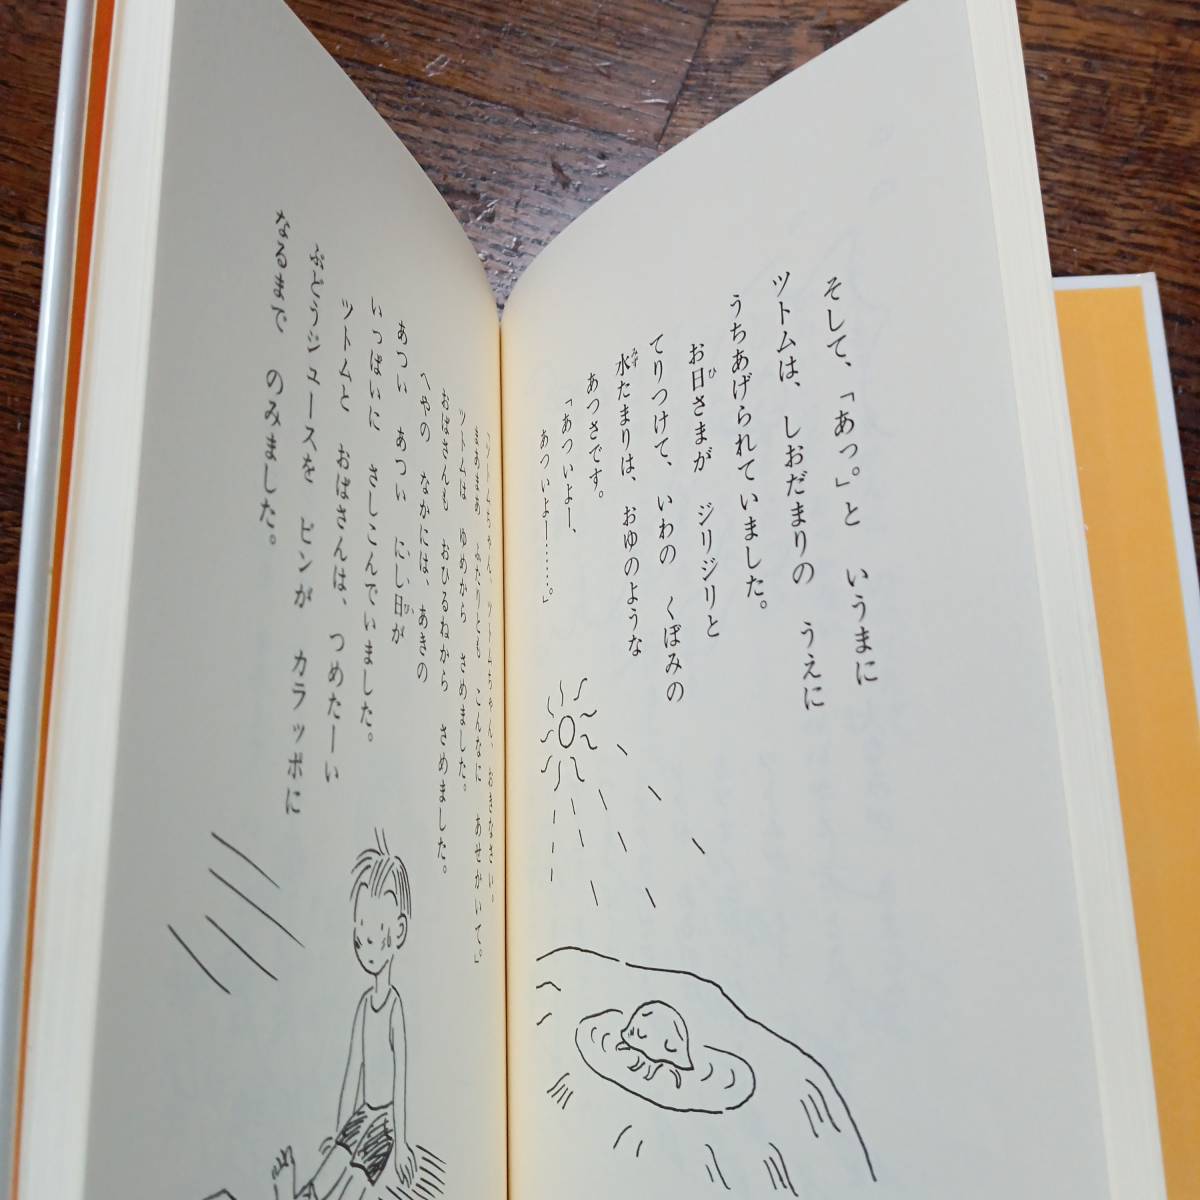 そして、「あっ。」と いうまに
ツトムは、しおだまりの うえに
うちあげられていました。
お日さまが ジリジリと
てりつけて、いわの くぼみの
水たまりは、おゆのような
あつさです。
「あついよー、
あついよー……。」
「ツトムちゃん、ツトムちゃん、おきなさい。
まあまあ ふたりとも こんなに あせかいて。」
ツトムは ゆめから さめました。
おばさんも おひるねから さめました。
へやの なかには、あきの
あつい あつい にし日が
いっぱいに さしこんでいました。
ツトムと おばさんは、つめたーい
ぶどうジュースを ビンが カラッポに
なるまで のみました。